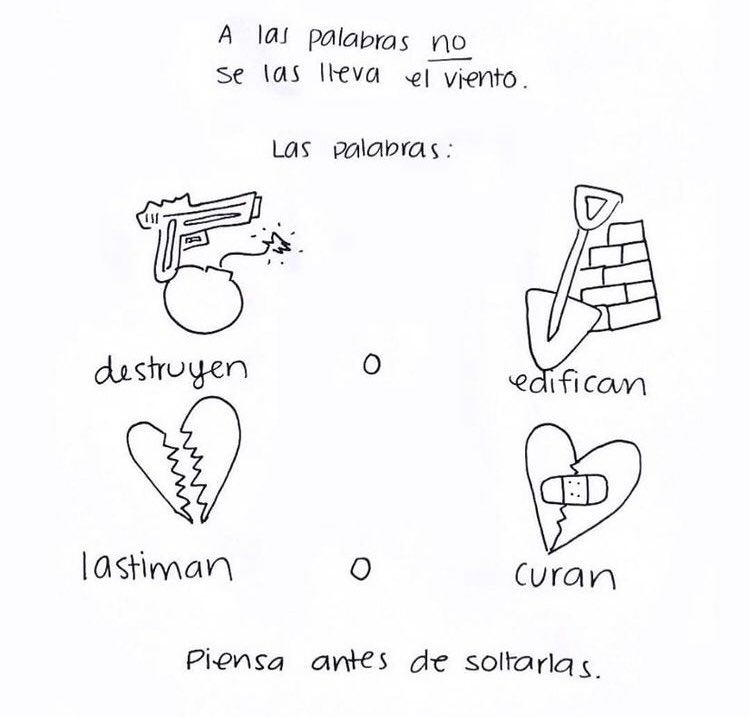 A las palabras no
se las lleva el viento.
Las palabras:
destruyen o edifican
lastiman o curan
Piensa antes de soltarlas.